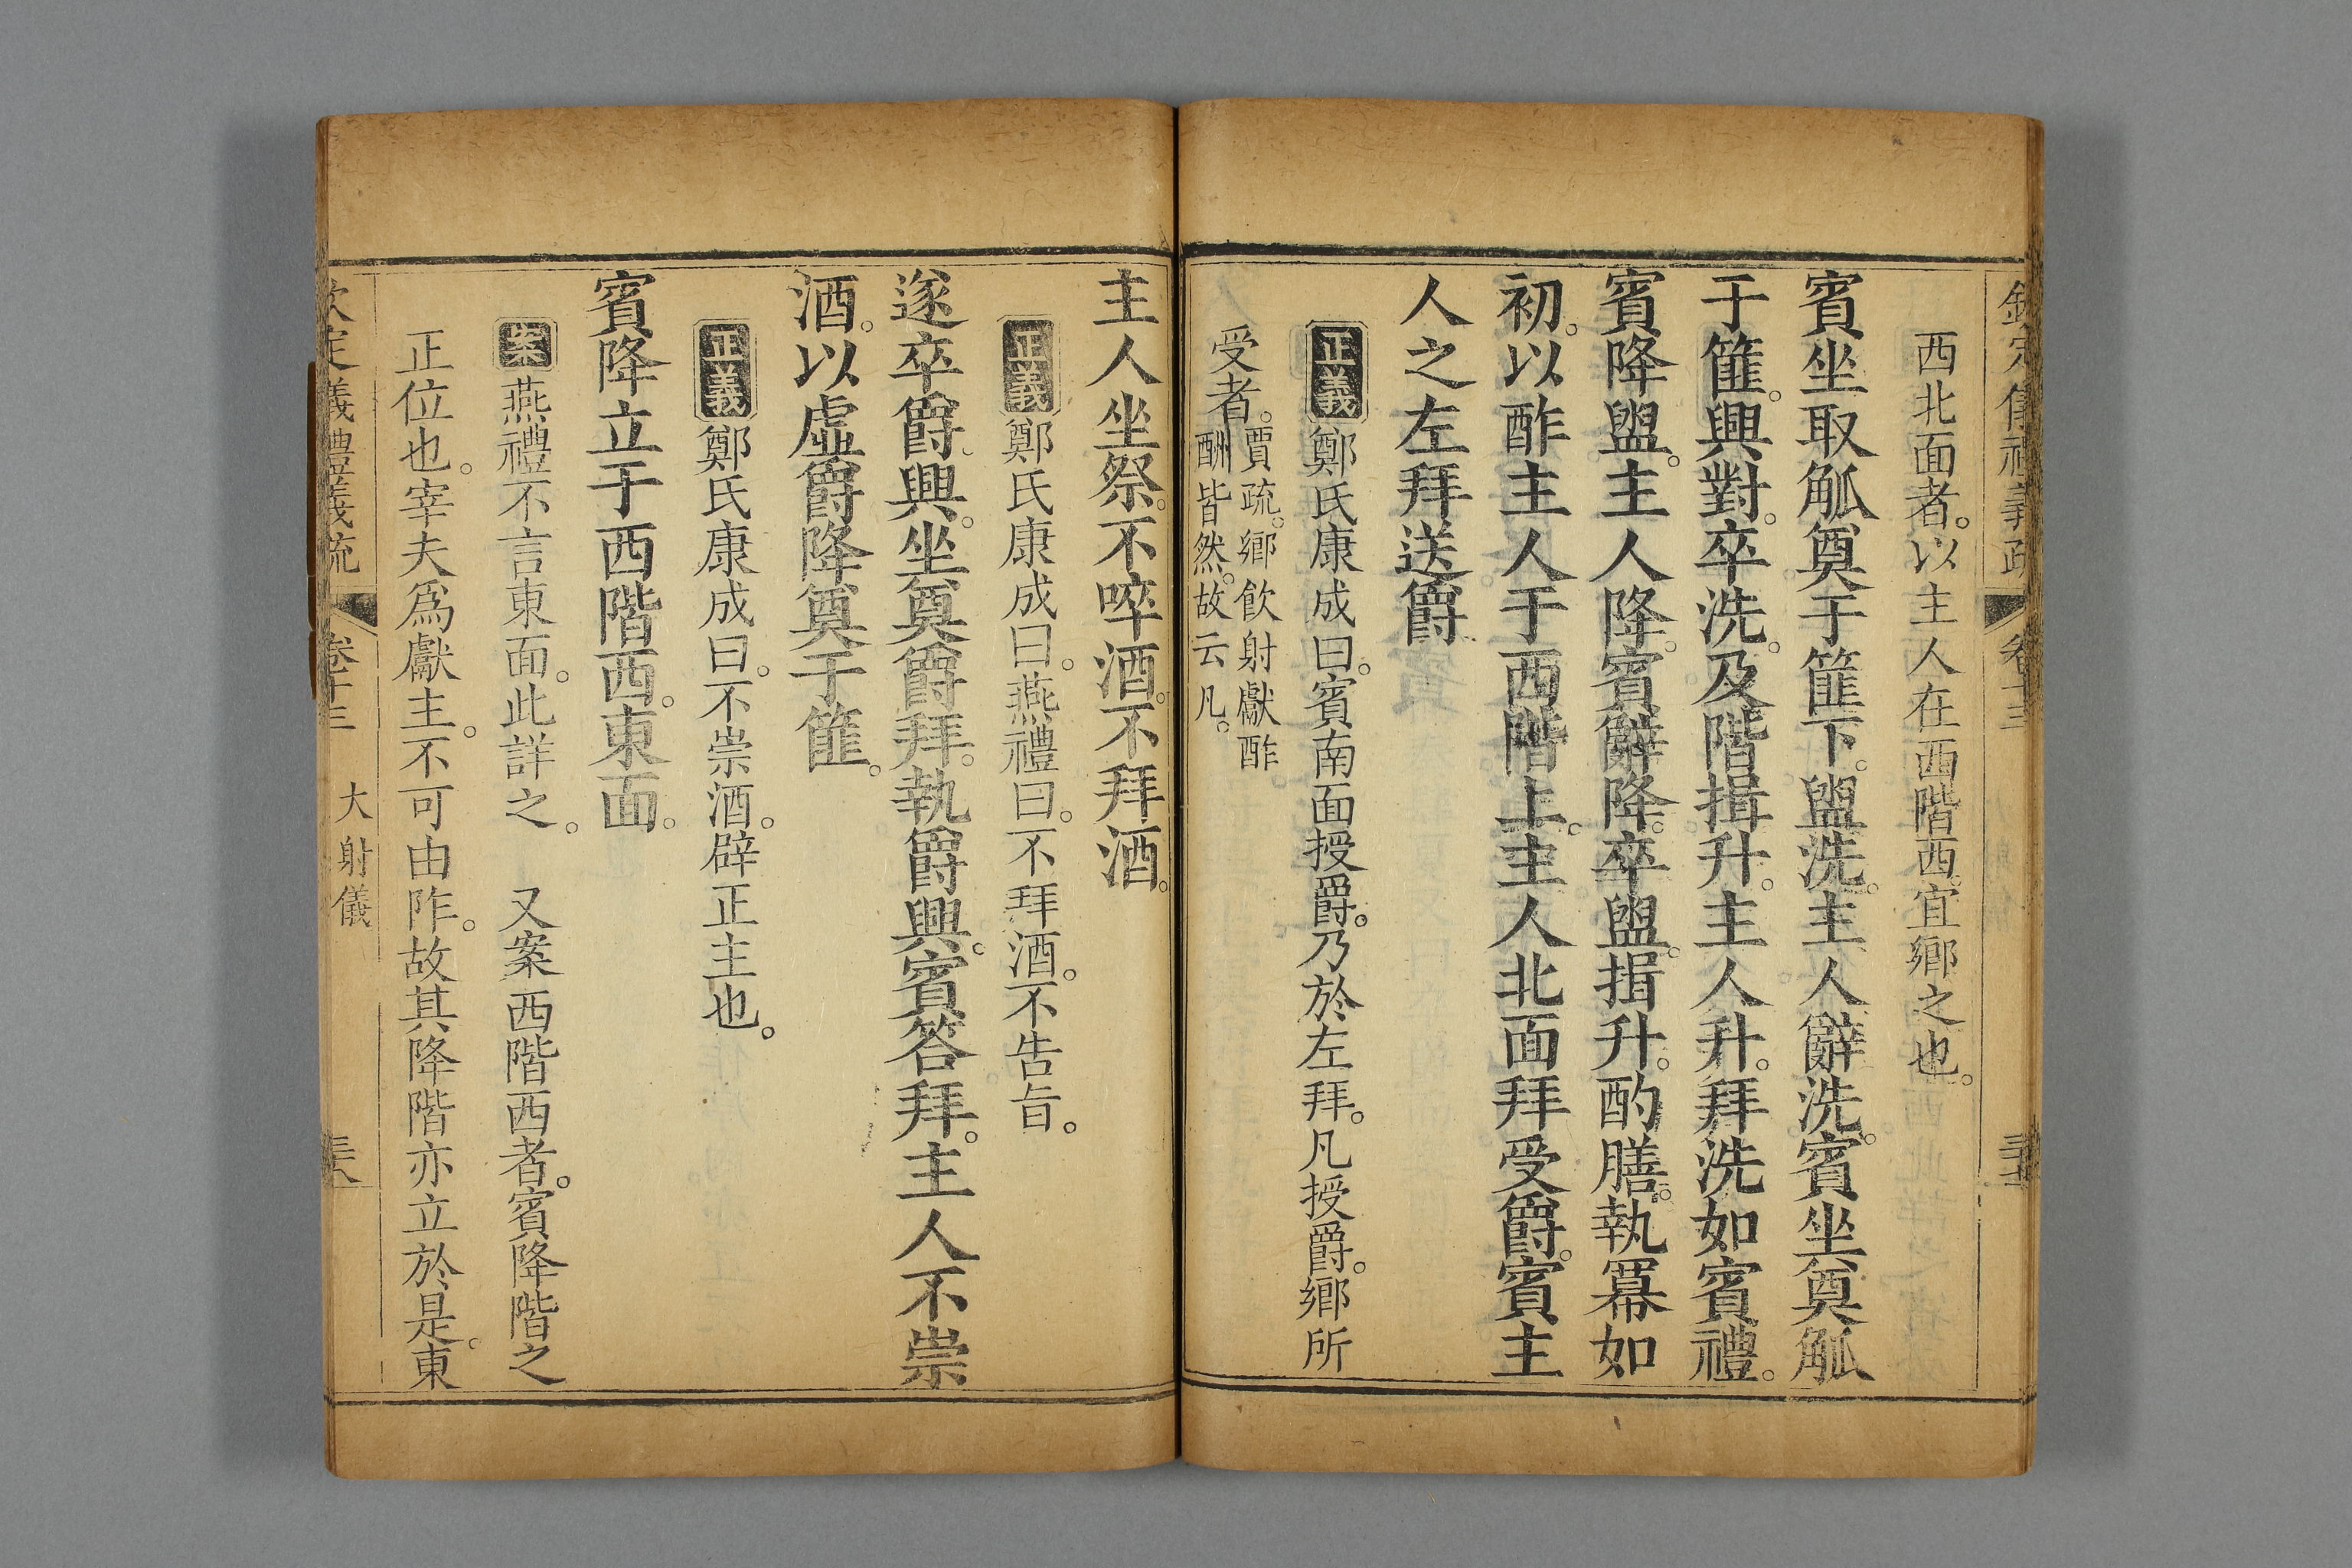 欽定儀禮義疏
西北面者。以主人在西階西。宜鄉之也。
賓坐取觚奠于篚下。盥洗。主人辭洗。賓坐奠觚
于篚。興對。卒洗。及階揖升。主人升。拜洗如賓禮。
賓降盥。主人降。賓辭降。卒盥。揖升。酌膳。執冪如
初。以酢主人于西階上。主人北面拜受爵。賓主
人之左拜送爵
正義鄭氏康成曰。賓南面授爵。乃於左拜。凡授爵。鄉所
受者。賈疏。鄉飲射獻酢
酬皆然。故云凡。
主人坐祭。不啐酒。不拜酒。
正義鄭氏康成曰。燕禮曰。不拜酒。不告旨。
遂卒爵。興。坐奠爵拜。執爵興。賓答拜。主人不崇
酒。以虛爵降。奠于篚。
正義鄭氏康成曰。不崇酒。辟正主也。
賓降立于西階西。東面。
案燕禮不言東面。此詳之。 又案西階西者。賓降階之
正位也。宰夫爲獻主。不可由阼。故其降階亦立於是。東
欽定儀禮義疏 卷十三 大射儀